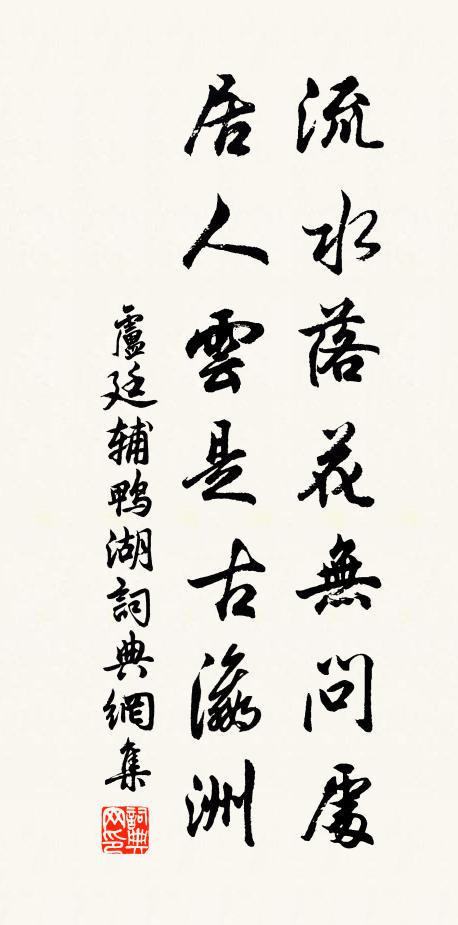 流水落花無問處
居人雲是古瀛洲
盧廷輔鴨湖詞典網集
詞典網印